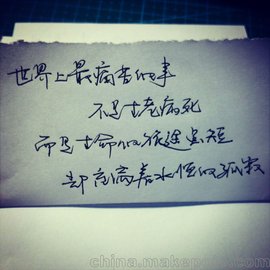 世界上最痛苦的事
不是生老病死
而是生命的旅途虽短
却充满着永恒的孤寂
china.makepolo.com